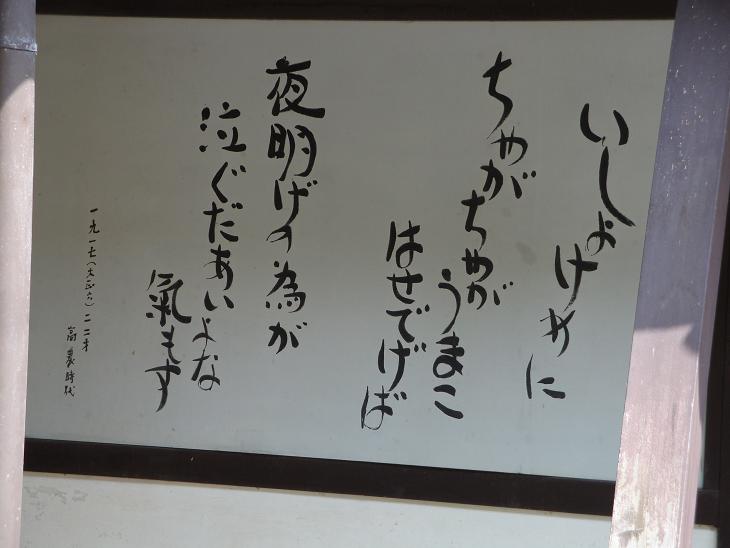 いしょけめに
ちゃがちゃがうまこ
はせでげば
夜明げの為が
泣ぐだあいよな
氣もす
一九一七(大正六)二二才
高農時代